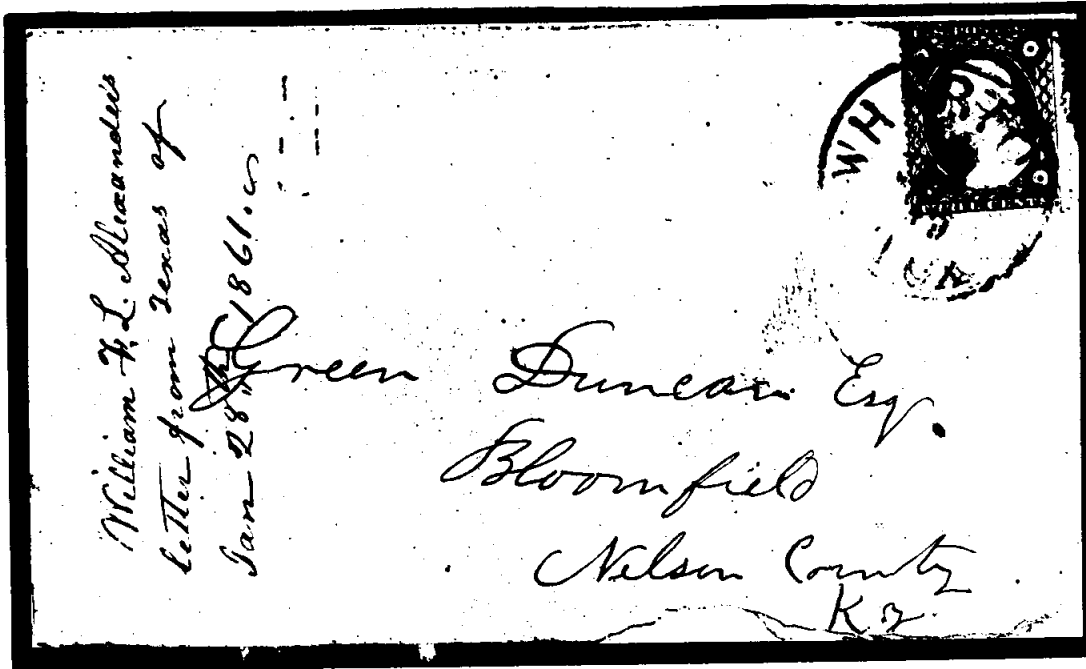 William F. L. Alexander's
letter from Texas of
Jan 28th 1861.
Green Duncan Esq.
Bloomfield
Nelson County
Ky.
WH